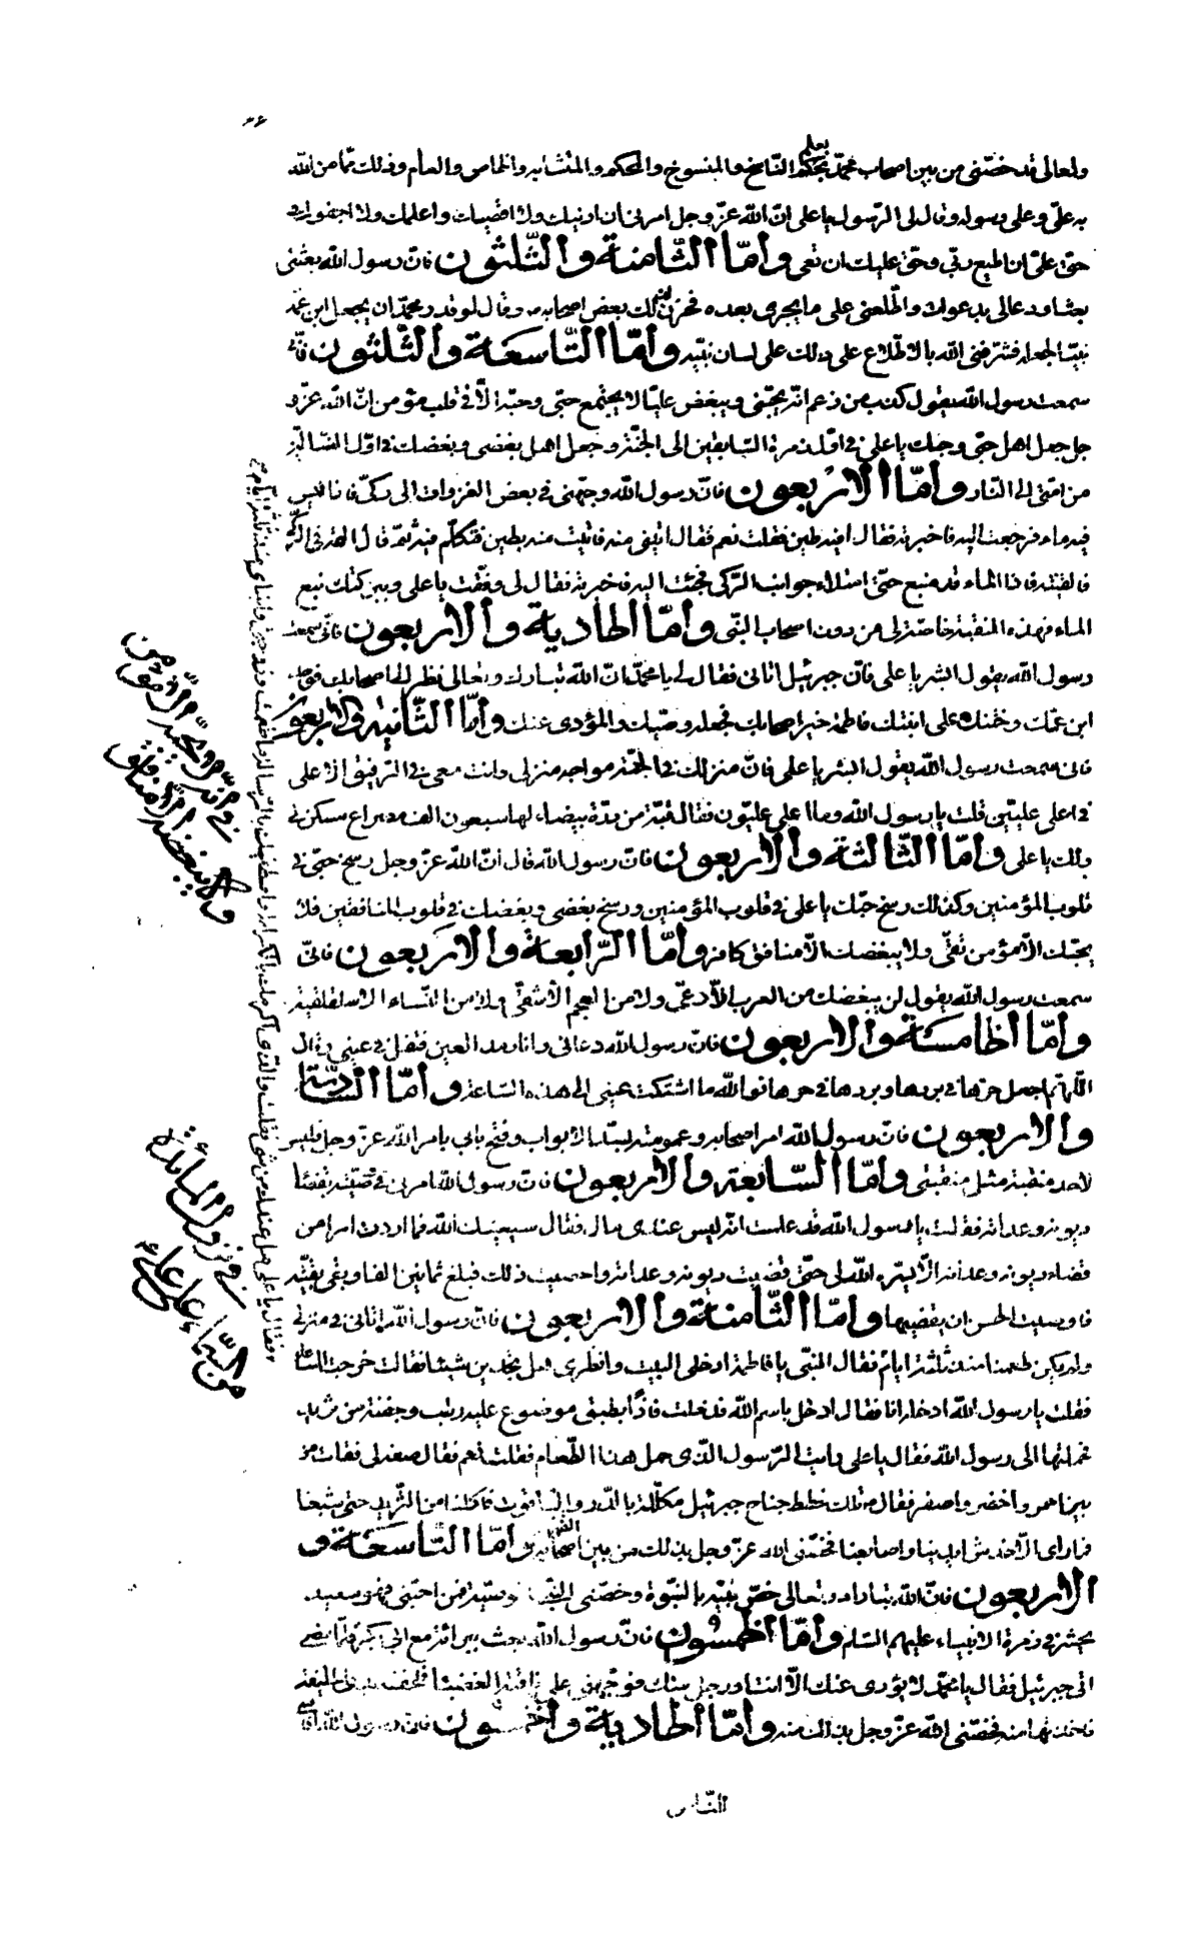 وتعالى قد خصّنى من بين اصحاب محمّد بعلم النّاسخ والمنسوخ والمحكم والمتشابه والخاص والعام وذلك ممّا من اللّه
به علىّ وعلى رسوله وقال لى الرّسول يا على انّ اللّه عزّ وجل امرنى ان ادنيك ولا اقصيك واعلمك ولا اجفوك و
حقّ علىّ ان اطيع ربّى وحقّ عليك ان تعى وامّا الثّامنة والثّلثون فانّ رسول اللّه بعثنى
بعثا ودعا لى بدعوات واطّلعنى على ما يجرى بعده فحزن لذلك بعض اصحابه وقال لو قدر محمّد ان يجعل ابن عمّه
نبيّا لجعله فشرّفنى اللّه بالاطّلاع على ذلك على لسان نبيّه وامّا التّاسعة والثّلثون فانّى
سمعت رسول اللّه يقول كذب من زعم انّه يحبّنى ويبغض عليّا لا يجتمع حبّى وحبّه الّا فى قلب مؤمن انّ اللّه عزّ و
جل جعل اهل حبّى وحبّك يا على فى اوّل زمرة السّابقين الى الجنّة وجعل اهل بغضى وبغضك فى اوّل الضّالّين
من امّتى الى النّار وامّا الاربعون فانّ رسول اللّه وجّهنى فى بعض الغزوات الى ركىّ فاذا ليس
فيه ماء فرجعت اليه فاخبرته فقال افيه طين فقلت نعم فقال ائتنى منه فاتيت منه بطين فتكلّم فيه ثمّ قال القه فى الركىّ
فالقيته فاذا الماء قد نبع حتّى امتلاء جوانب الرّكى فجئت اليه فاخبرته فقال لى وفّقت يا على وببركتك نبع
الماء فهذه المنقبة خاصّة لى من دون اصحاب النّبى وامّا الحادية والاربعون فانّى سمعت
رسول اللّه يقول ابشر يا على فانّ جبرئيل اتانى فقال لى يا محمّد انّ اللّه تبارك وتعالى نظر الى اصحابك فوجد
ابن عمّك وختنك على ابنتك فاطمة خير اصحابك فجعله وصيّك والمؤدى عنك وامّا الثّانية والاربعون
فانى سمعت رسول اللّه يقول ابشر يا على فانّ منزلك فى الجنّة مواجه منزلى وانت معى فى الرّفيق الاعلى
فى اعلى علّيّين قلت يا رسول اللّه وما اعلى علّيّون فقال قبّة من درّة بيضاء لها سبعون الف مصراع مسكن لى
ولك يا على وامّا الثّالثة والاربعون فانّ رسول اللّه قال انّ اللّه عزّ وجل رسخ حبّى فى
قلوب المؤمنين وكذلك رسخ حبّك يا على فى قلوب المؤمنين ورسخ بغضى وبغضك فى قلوب المنافقين فلا
يحبّك الّا مؤمن تقىّ ولا يبغضك الّا منافق كافر وامّا الرّابعة والاربعون فانّى
سمعت رسول اللّه يقول لن يبغضك من العرب الّا دعىّ ولا من العجم الّا شقىّ ولا من النّساء الّا سلقلقية
وامّا الخامسة والاربعون فانّ رسول اللّه دعانى وانا رمد العين فتفل فى عينى وقال
اللّهمّ اجعل حرّها فى بردها وبردها فى حرّها فواللّه ما اشتكت عينى الى هذه السّاعة وامّا السّادسة
والاربعون فانّ رسول اللّه امر اصحابه وعمومته بسدّ الابواب وفتح بابى بامر اللّه عزّ وجل فليس
لاحد منقبة مثل منقبتى وامّا السّابعة والاربعون فانّ رسول اللّه امرنى فى وصيّته بقضاء
ديونه وعداته فقلت يا رسول اللّه قد علمت انّه ليس عندى مال فقال سيعينك اللّه فما اردت امرا من
قضاء ديونه وعداته الّا يسّره اللّه لى حتّى قضيت ديونه وعداته واحصيت ذلك فبلغ ثمانين الفا وبقى بقيّة
فاوصيت الحسن ان يقضيها وامّا الثّامنة والاربعون فانّ رسول اللّه اتانى فى منزلى
ولم يكن طعمنا منذ ثلثة ايّام فقال النّبى يا فاطمة ادخلى البيت وانظرى هل تجدين شيئا فقالت خرجت السّاعة
فقلت يا رسول اللّه ادخله انا فقال ادخل باسم اللّه فدخلت فاذا بطبق موضوع عليه رطب وجفنة من ثريد
فحملتها الى رسول اللّه فقال يا على رايت الرّسول الّذى حمل هذا الطّعام فقلت نعم فقال صفه لى فقلت من
بين احمر واخضر واصفر فقال تلك خطط جناح جبرئيل مكلّلة بالدّر والياقوت فاكلنا من الثّريد حتّى شبعنا
فما راى الّا خدش ايدينا واصابعنا فخصّنى اللّه عزّ وجل بذلك من بين اصحابه وامّا التّاسعة و
الاربعون فانّ اللّه تبارك وتعالى خصّ نبيّه بالنبوّة وخصّنى النّبى بالوصيّة فمن احبّنى فهو سعيد
يحشر فى زمرة الانبياء عليهم السّلم وامّا الخمسون فانّ رسول اللّه بعث ببرائة مع ابى بكر فلمّا مضى
اتى جبرئيل فقال يا محمّد لا يؤدى عنك الّا انت او رجل منك فوجّهنى على ناقته العضباء فلحقته بذى الحليفة
فاخذتها منه فخصّنى اللّه عزّ وجل بذلك منه وامّا الحادية والخمسون فانّ رسول اللّه اقامنى
للنّاس
فى انّه لا يحبّه الّا مؤمن
ولا يبغضه الّا منافق
فى نزول المائدة
من السّماء على علىّ
فقال يا على هل عندك من شى فقلت والّذى اكرمك بالكرامة واصطفيك بالرّسالة ما طعمت وزوجتى وابناى منذ ثلثة ايّام